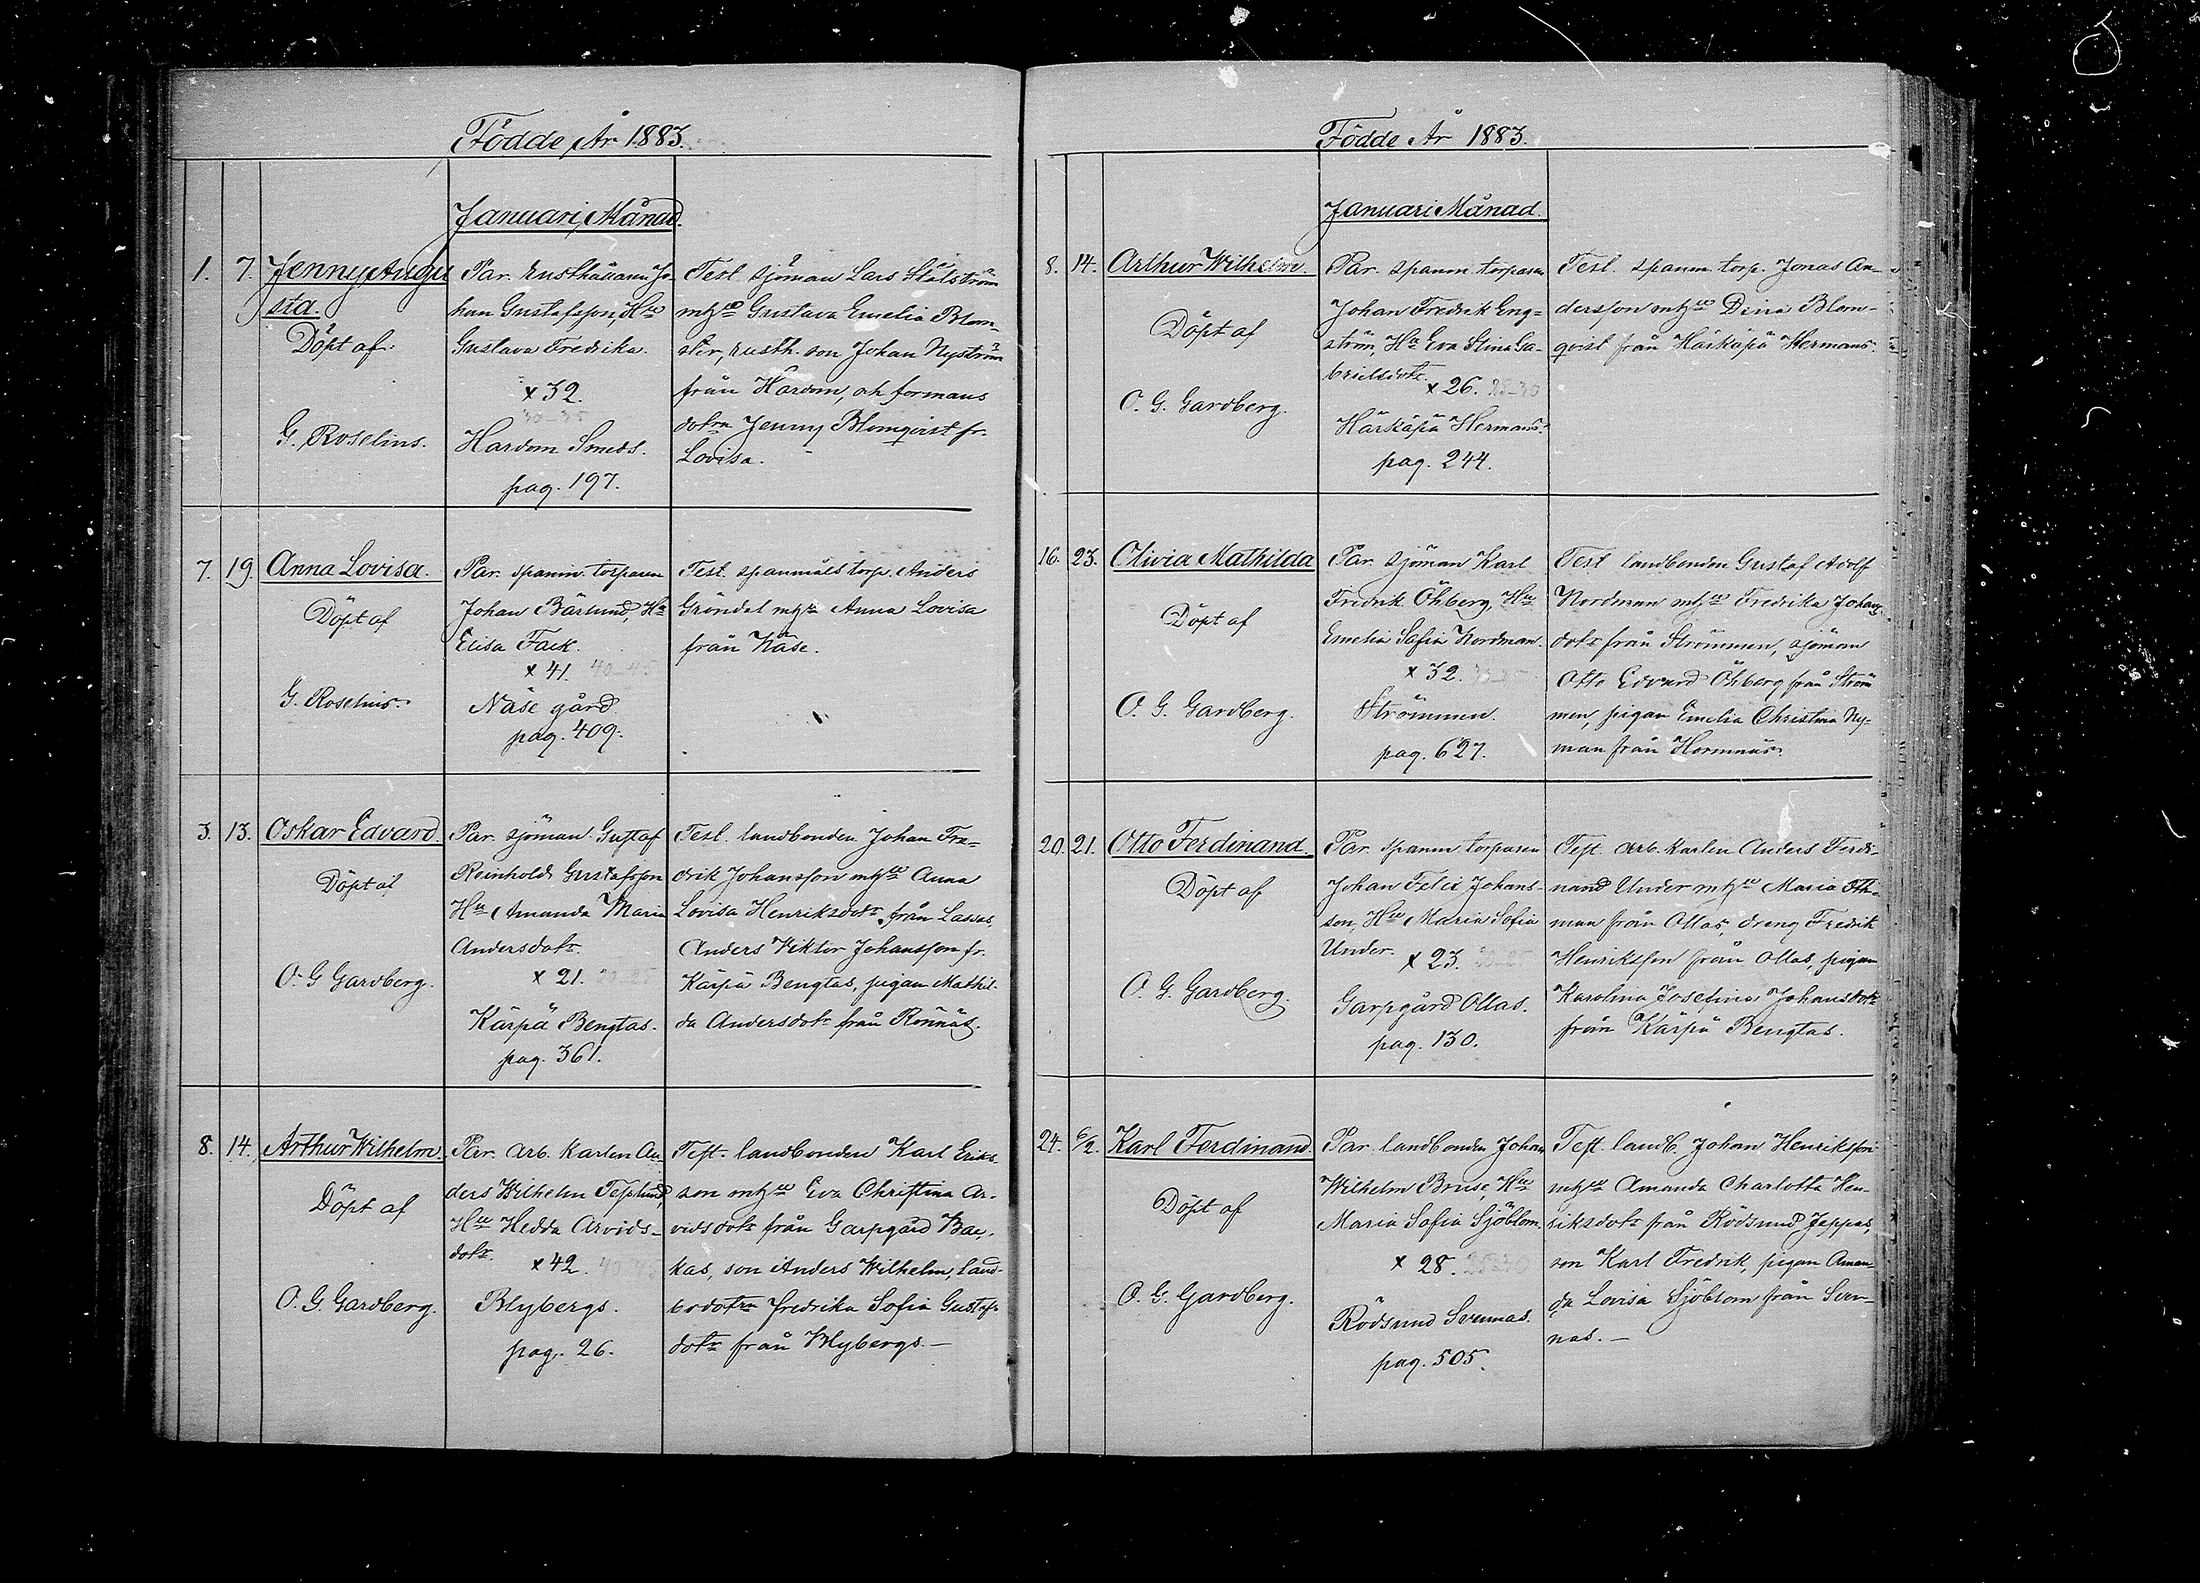 Födde År 1883.
Januari Månad.
1. 7. Jenny Augu
sta.
Döpt af:
G. Roselius.
Par. rusthållaren Jo-
han Gustafsson, Hu
Gustava Fredrika.
x 32.
30-35
Hardom Smeds.
pag. 197.
Test. sjöman Lars Stålström
mhu Gustava Emelia Blom-
ster, rusth. son Johan Nyström
från Hardom, och formans
dotra Jenny Blomqvist fr.
Lovisa.
7. 19. Anna Lovisa.
Döpt af
G. Roselius.
Par. spanm. torparen
Johan Bärlund, Hu
Elisa Fack.
x 41. 40-45
Näse gård
pag. 409.
Test. spanmåls torp. Anders
Gröndal Anna Lovisa
från Näse.
3. 13. Oskar Edvard.
Döpt af
O. G Gardberg.
Par. sjöman Gustaf
Reinhold Gustafsson
Hu Amanda Maria
Andersdotr.
x 21. 20-25
Kärpä Bengtas.
pag. 361.
Test. landbonden Johan Fre-
drik Johansson mhu Anna
Lovisa Henriksdotr från Lassas,
Anders Viktor Johansson fr.
Kärpä Bengtas, pigan Mathil-
da Andersdotr från Rönnäs.
8. 14. Arthur Wilhelm.
Döpt af
O. G. Gardberg.
Par. arb. karlen An
ders Wilhelm
Hu Hedda Arvids-
dotr.
x 42.
Blybergs.
pag. 26.
Test. landbonden Karl Eriks-
son mhu Eva Christina Ar-
vidsdotr från Garpgård Bac-
kas, son Anders Wilhelm, land-
bdotra fredrika Sofia Gustafs
dotr från Blybergs.—
Födde År 1883.
Januari Månad.
8. 14. Arthur Wilhelm.
Döpt af
O. G. Gardberg.
Par. spanm. torparen
Johan Fredrik Eng=
ström, Hu Eva Stina Ga-
brielsdotr.
x 26. 25-30
Härkäpä Hermans.
pag. 244.
Test. spanm. torp. Jonas An-
dersson mhu Dina Blom-
qvist från Härkäpä Hermans.
16. 23. Olivia Mathilda
Döpt af
O. G. Gardberg.
Par. sjöman Karl
Fredrik Öhberg, Hu
Emelia Sofia Nordman.
x 32. 30-35
Strömmen.
pag. 627.
Test landbonden Gustaf Adolf
Nordman mhu Fredrika Johans
dotr från Strömmen, sjöman
Otto Edvard Öhberg från Ström
men, pigan Emelia Christina Ny=
man från Hormnäs.
20. 21. Otto Ferdinand.
Döpt af
O. G. Gardberg.
Par. spanm torparen
Johan Felix Johans-
son, Hu Maria Sofia
Under.
x 23. 20-25
Garpgård Ollas.
pag. 130.
Test. arb. karlen Anders Ferdi-
nand Under mhu Maria Öh-
man från Ollas, dreng Fredrik
Henriksson från Ollas, pigan
Karolina Josefina Johansdotr
från Kärpä Bengtas.
24. 6/2. Karl Ferdinand.
Döpt af
O. G. Gardberg.
Par. landbonden Johan
Wilhelm Bruse, Hu
Maria Sofia Sjöblom.
x 28. 25-30
Rödsund Svennas.
pag. 505.
Test. landb. Johan Henriksson
mhu Amanda Charlotta Hen-
riksdotr från Rödsund Jeppas,
son Karl Fredrik, pigan Aman-
da Lovisa Sjöblom från Sven-
nas.—